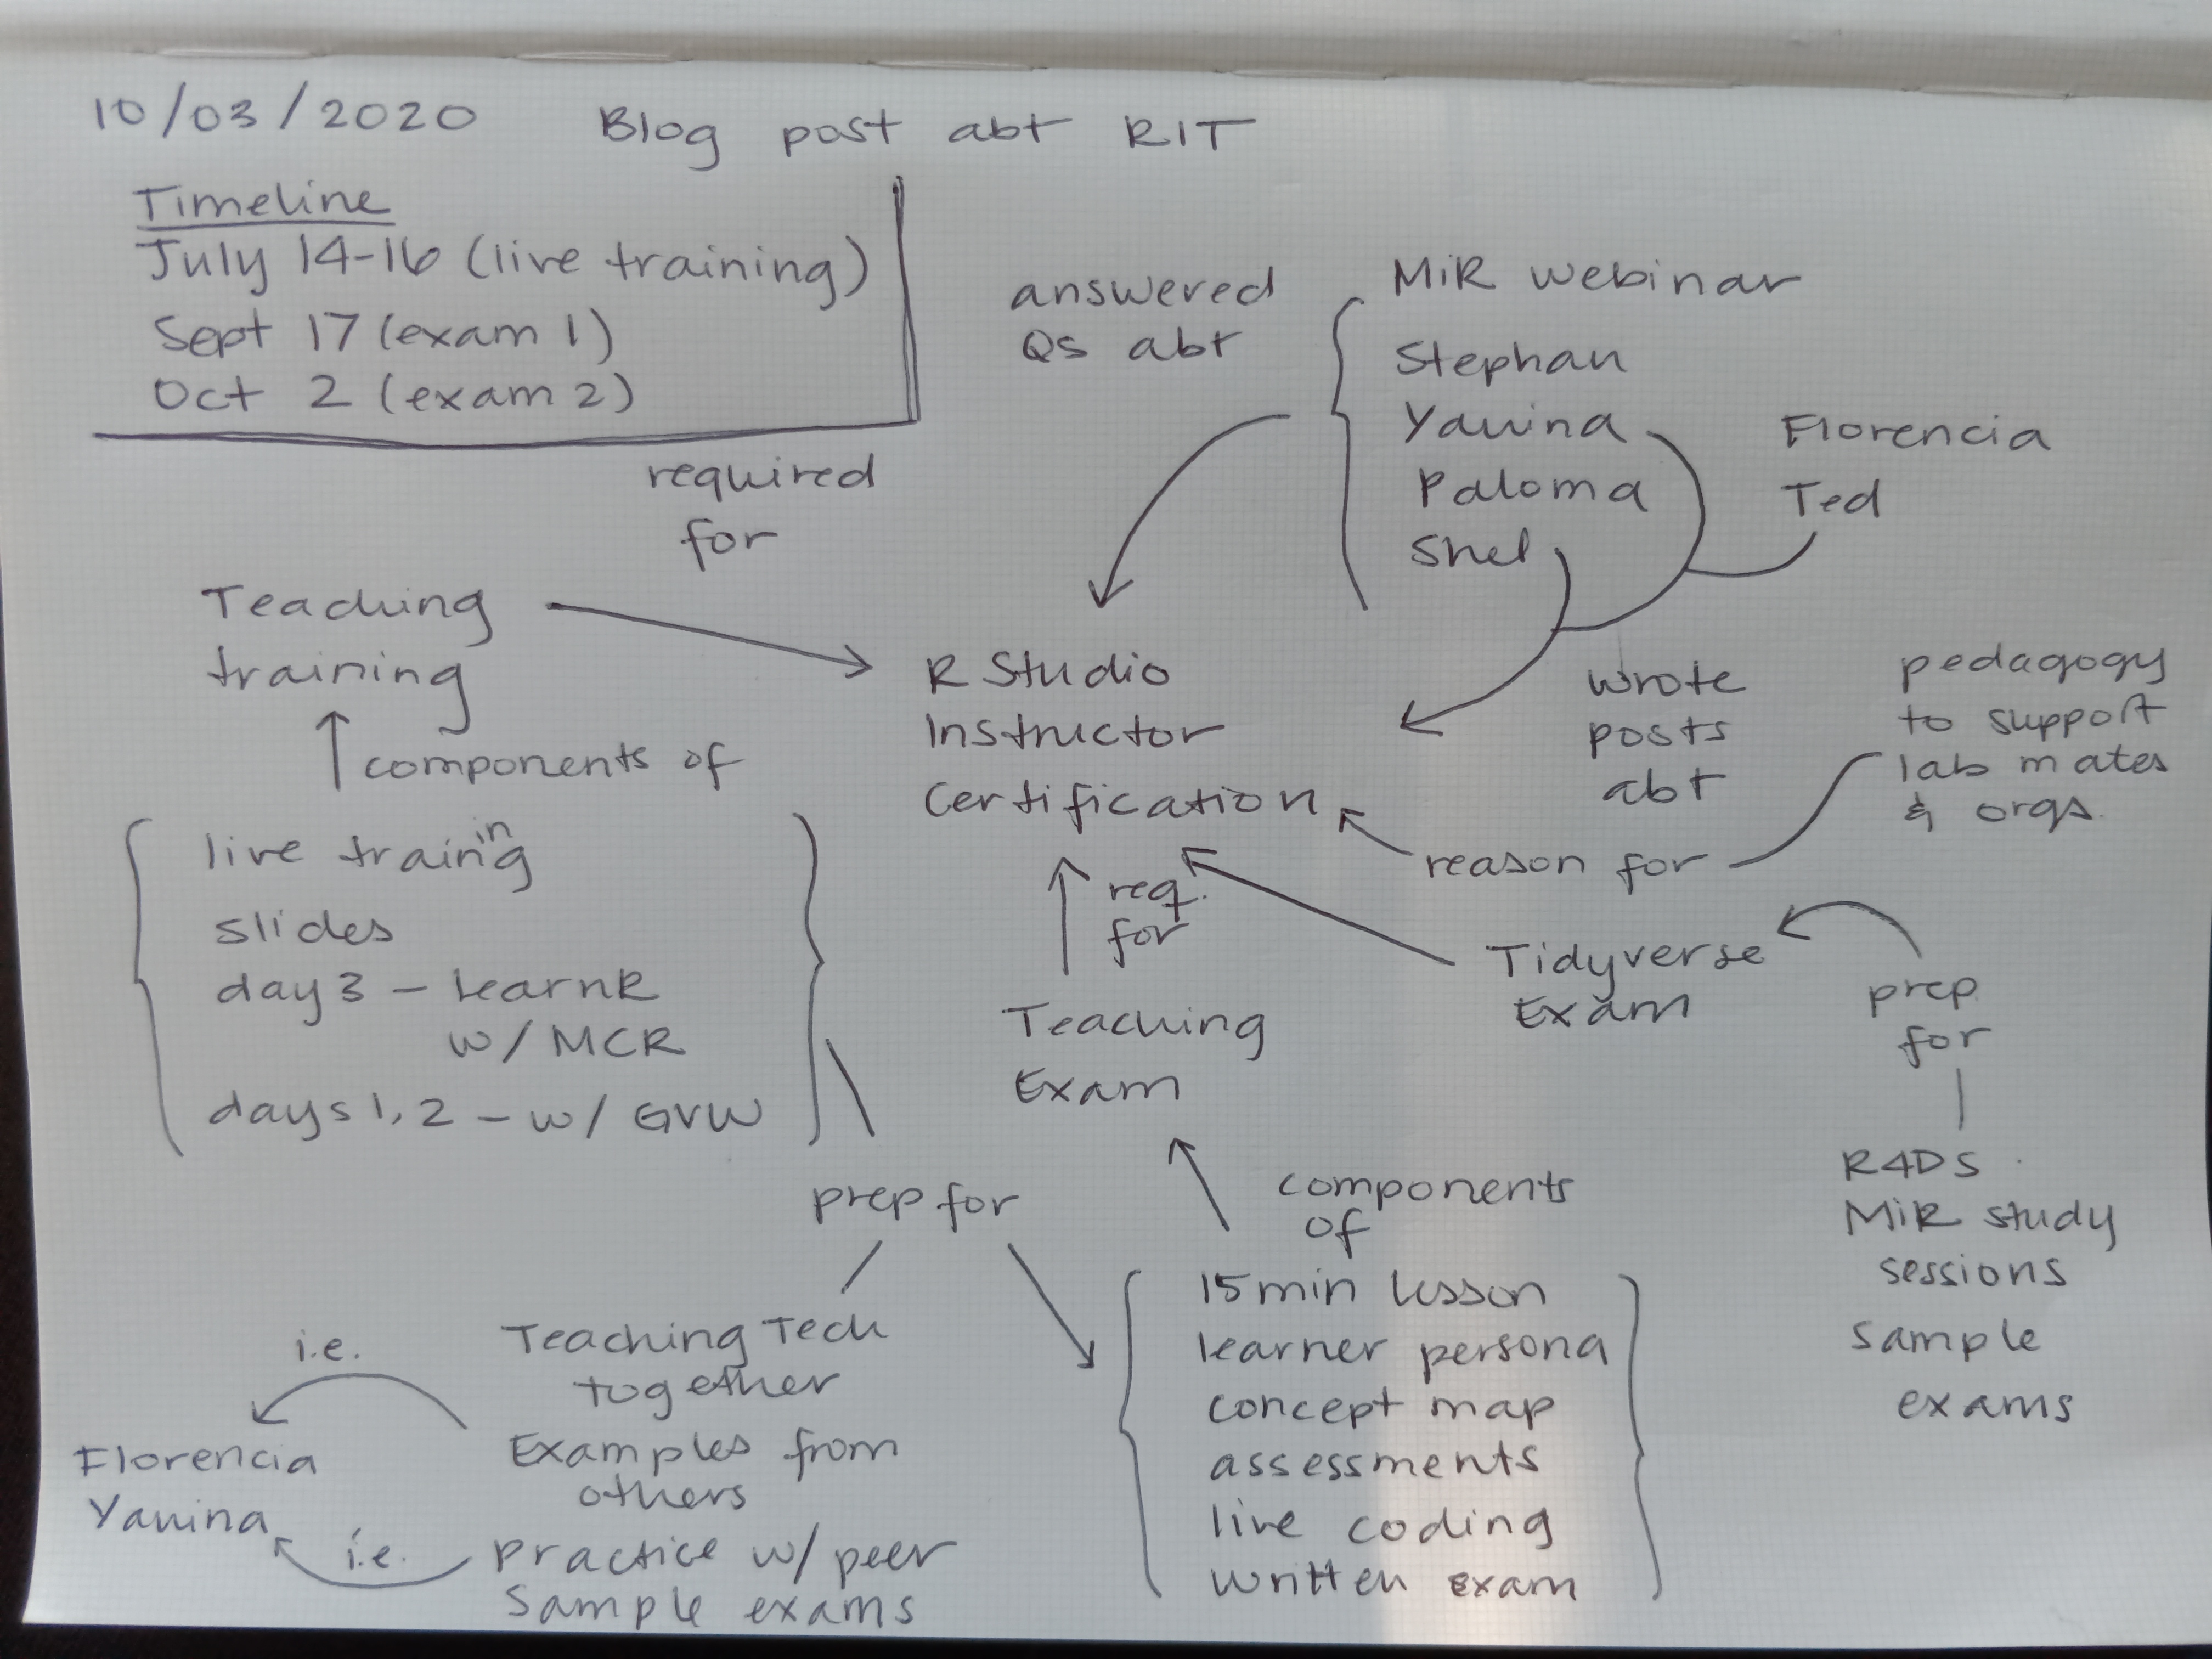 10/03/2020 Blog post abt RIT
Timeline
July 14-16 (live training)
Sept 17 (exam 1)
Oct 2 (exam 2)
answered
Qs abt
MiR webinar
Stephan
Yanina
Paloma
Shel
Florencia
Ted
required
for
Teaching
training
components of
R Studio
Instructor
Certification
wrote
posts
abt
pedagogy
to support
lab mates
& orgs.
reason for
live training
slides
day 3 - LearnR
w/ MCR
days 1, 2 - w/ GVW
req.
for
Teaching
Exam
Tidyverse
Exam
prep
for
R4DS
MiR study
sessions
Sample
exams
prep for
components
of
15 min lesson
learner persona
concept map
assessments
live coding
written exam
Teaching Tech
together
Examples from
others
Practice w/ peer
Sample exams
i.e.
Florencia
Yanina
i.e.